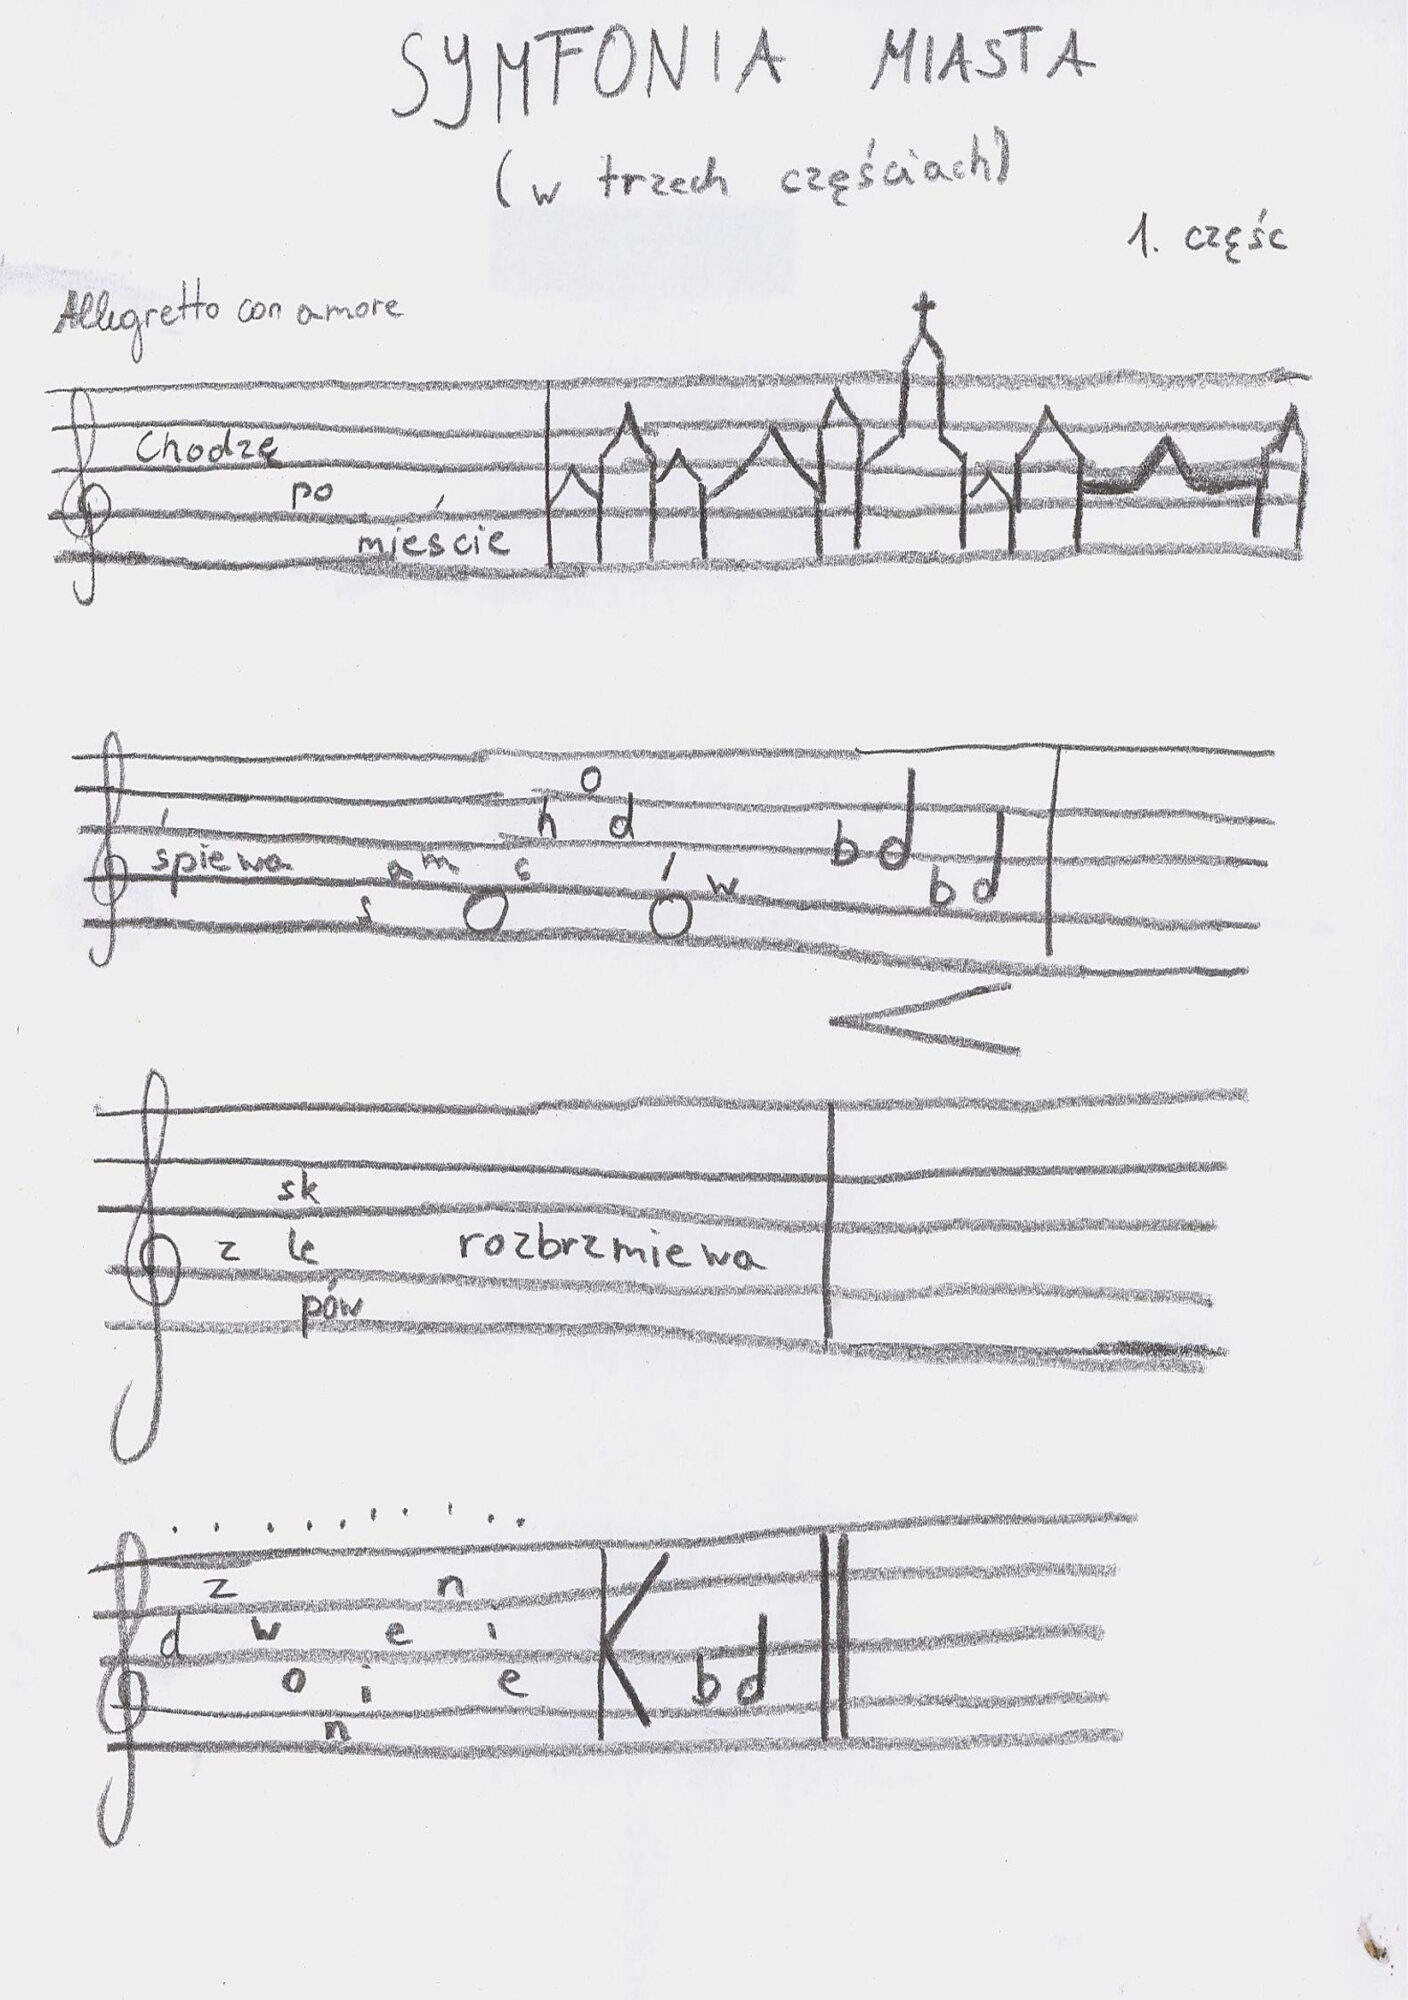 SYMFONIA MIASTA
(w trzech częściach)
1. częśc
Allegretto con amore
Chodzę
po
mieście
śpiewa samochodów bd bd
sk
z le rozbrzmiewa
pów
dzwonienie K bd